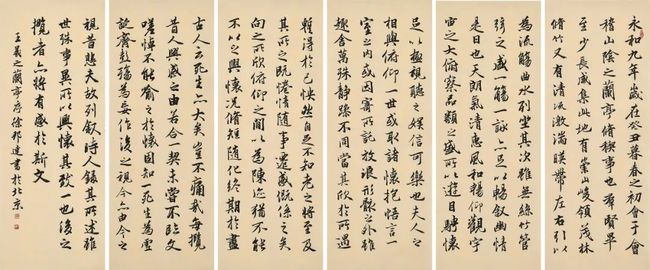 永和九年歲在癸丑暮春之初會于會
稽山陰之蘭亭脩稧事也群賢畢
至少長咸集此地有崇山峻領茂林
脩竹又有清流激湍暎帶左右引以
為流觴曲水列坐其次雖無絲竹管
弦之盛一觴一詠亦足以暢叙幽情
是日也天朗氣清惠風和暢仰觀宇
宙之大俯察品類之盛所以遊目騁懷
足以極視聽之娛信可樂也夫人之
相與俯仰一世或取諸懷抱悟言一
室之內或因寄所託放浪形骸之外雖
趣舍萬殊靜躁不同當其欣於所遇
暫得於己怏然自足不知老之將至及
其所之既惓情隨事遷感慨係之矣
向之所欣俯仰之間以為陳迹猶不能
不以之興懷況脩短隨化終期於盡
古人云死生亦大矣豈不痛哉每攬
昔人興感之由若合一契未嘗不臨文
嗟悼不能喻之於懷固知一死生為虛
誕齊彭殤為妄作後之視今亦由今之
視昔悲夫故列叙時人錄其所述雖
世殊事異所以興懷其致一也後之
攬者亦將有感於斯文
王羲之蘭亭序 徐邦達書於北京